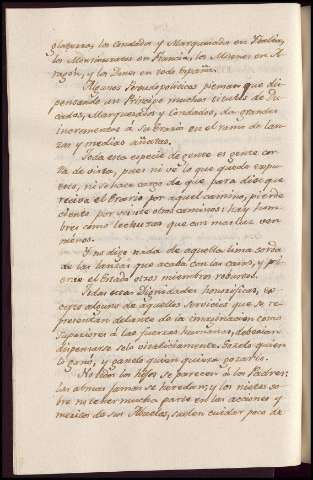 glaterra, los Condados y Marquesados en Italia,
los Monsiuratos en Francia, los Mosenes en A-
ragon, y los Dones en toda España.
Algunos Pseudopoliticos piensan que dis-
pensando un Principe muchos titulos de Du-
cados, Marquesados y Condados, da grandes
incrementos à su Erario en el ramo de lan-
zas y medias añatas.
Toda esta especie de gente es gente cor-
ta de vista, pues ni vè lo que queda expu-
esto, ni se hace cargo de que para diez que
reciva el Erario por aquel camino, pierde
ciento por veinte otros caminos: hay hom-
bres como lechuzas que con mas luz ven
menos.
Y no digo nada de aquella lima sorda
de las lanzas que acaba con las casas, y pi-
erde el Estado otros miembros robustos.
Todas estas Dignidades honorificas, ex-
cepto alguno de aquellos servicios que se re-
presentan delante de la imaginacion como
superiores à las fuerzas humanas, debieran
dispensarse solo vitaliciamente. Gozelo quien
lo ganò, y ganelo quien quiera gozarlo.
No todos los hijos se parecen à los Padres:
las almas jamas se heredan; y los nietos so-
bre no tener mucha parte en las acciones y
meritos de sus Abuelos, suelen cuidar poco de